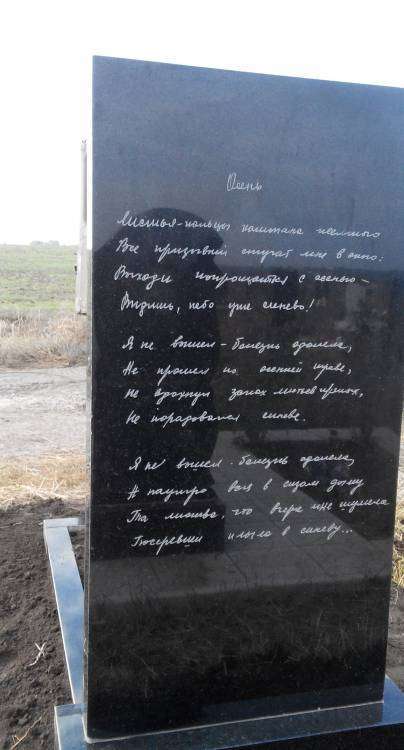 Осень
Листья-пальцы каштана
Все призывней стучат мне в окно:
Выходи попрощаться с осенью –
Видишь, небо уже синево!
Я не вышел - болезнь одолела,
Не прошел по осенней траве,
Не вдохнул запах листьев прелых,
Не порадовался синеве.
Я не вышел - болезнь одолела,
А наутро вся в сизом дыму
Та листва, что вчера мне шумела
Посеревши плыла в синеву...